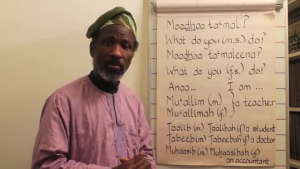 Maadhaa ta'mal?
What do you (m.s.) do?
Maadhaa ta'maleena?
What do you (f.s.) do?
Anaa... I am ...
Mu'allim (m)
Mu'allimah (f) } a teacher
Taalib (m) Taalibah (f) a student
Tabeeb (m) Tabeebah (f) a doctor
Muhaasib (m) Muhaasibah (f)
an accountant